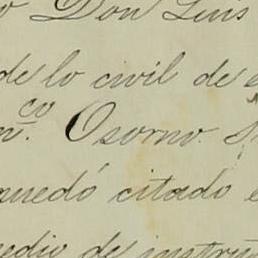 o Don Luis
de lo civil de
n.co Osorno.
quedó citado
medio de instru